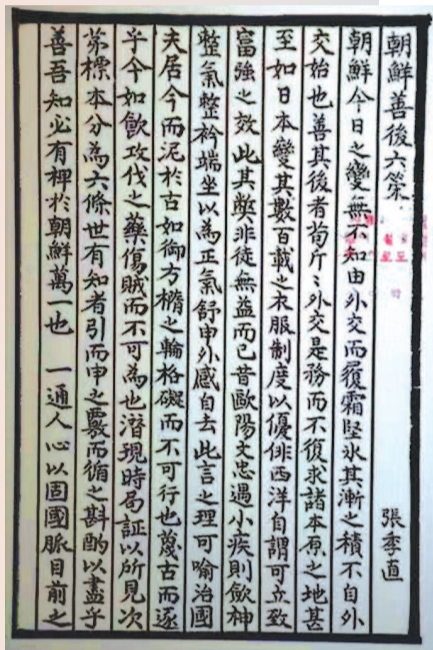 朝鮮善後六策 張季直
朝鮮今日之變無不知由外交而履霜堅氷其漸之積不自外
交始也善其後者苟斤〻外交是務而不復求諸本原之地甚
至如日本變其數百載之衣服制度以優俳西洋自謂可立致
富強之效此其弊非徒無益而已昔歐陽文忠遇小疾則歛神
整氣整衿端坐以為正氣舒申外感自去此言之理可喻治國
夫居今而泥於古如御方橢之輪格礙而不可行也蔑古而逐
乎今如飲攻伐之藥傷賊而不可為也潛現時局証以所見次
苐標本分為六條世有知者引而申之覈而循之斟酌以盡乎
善吾知必有裨於朝鮮萬一也 一通人心以固國脈目前之